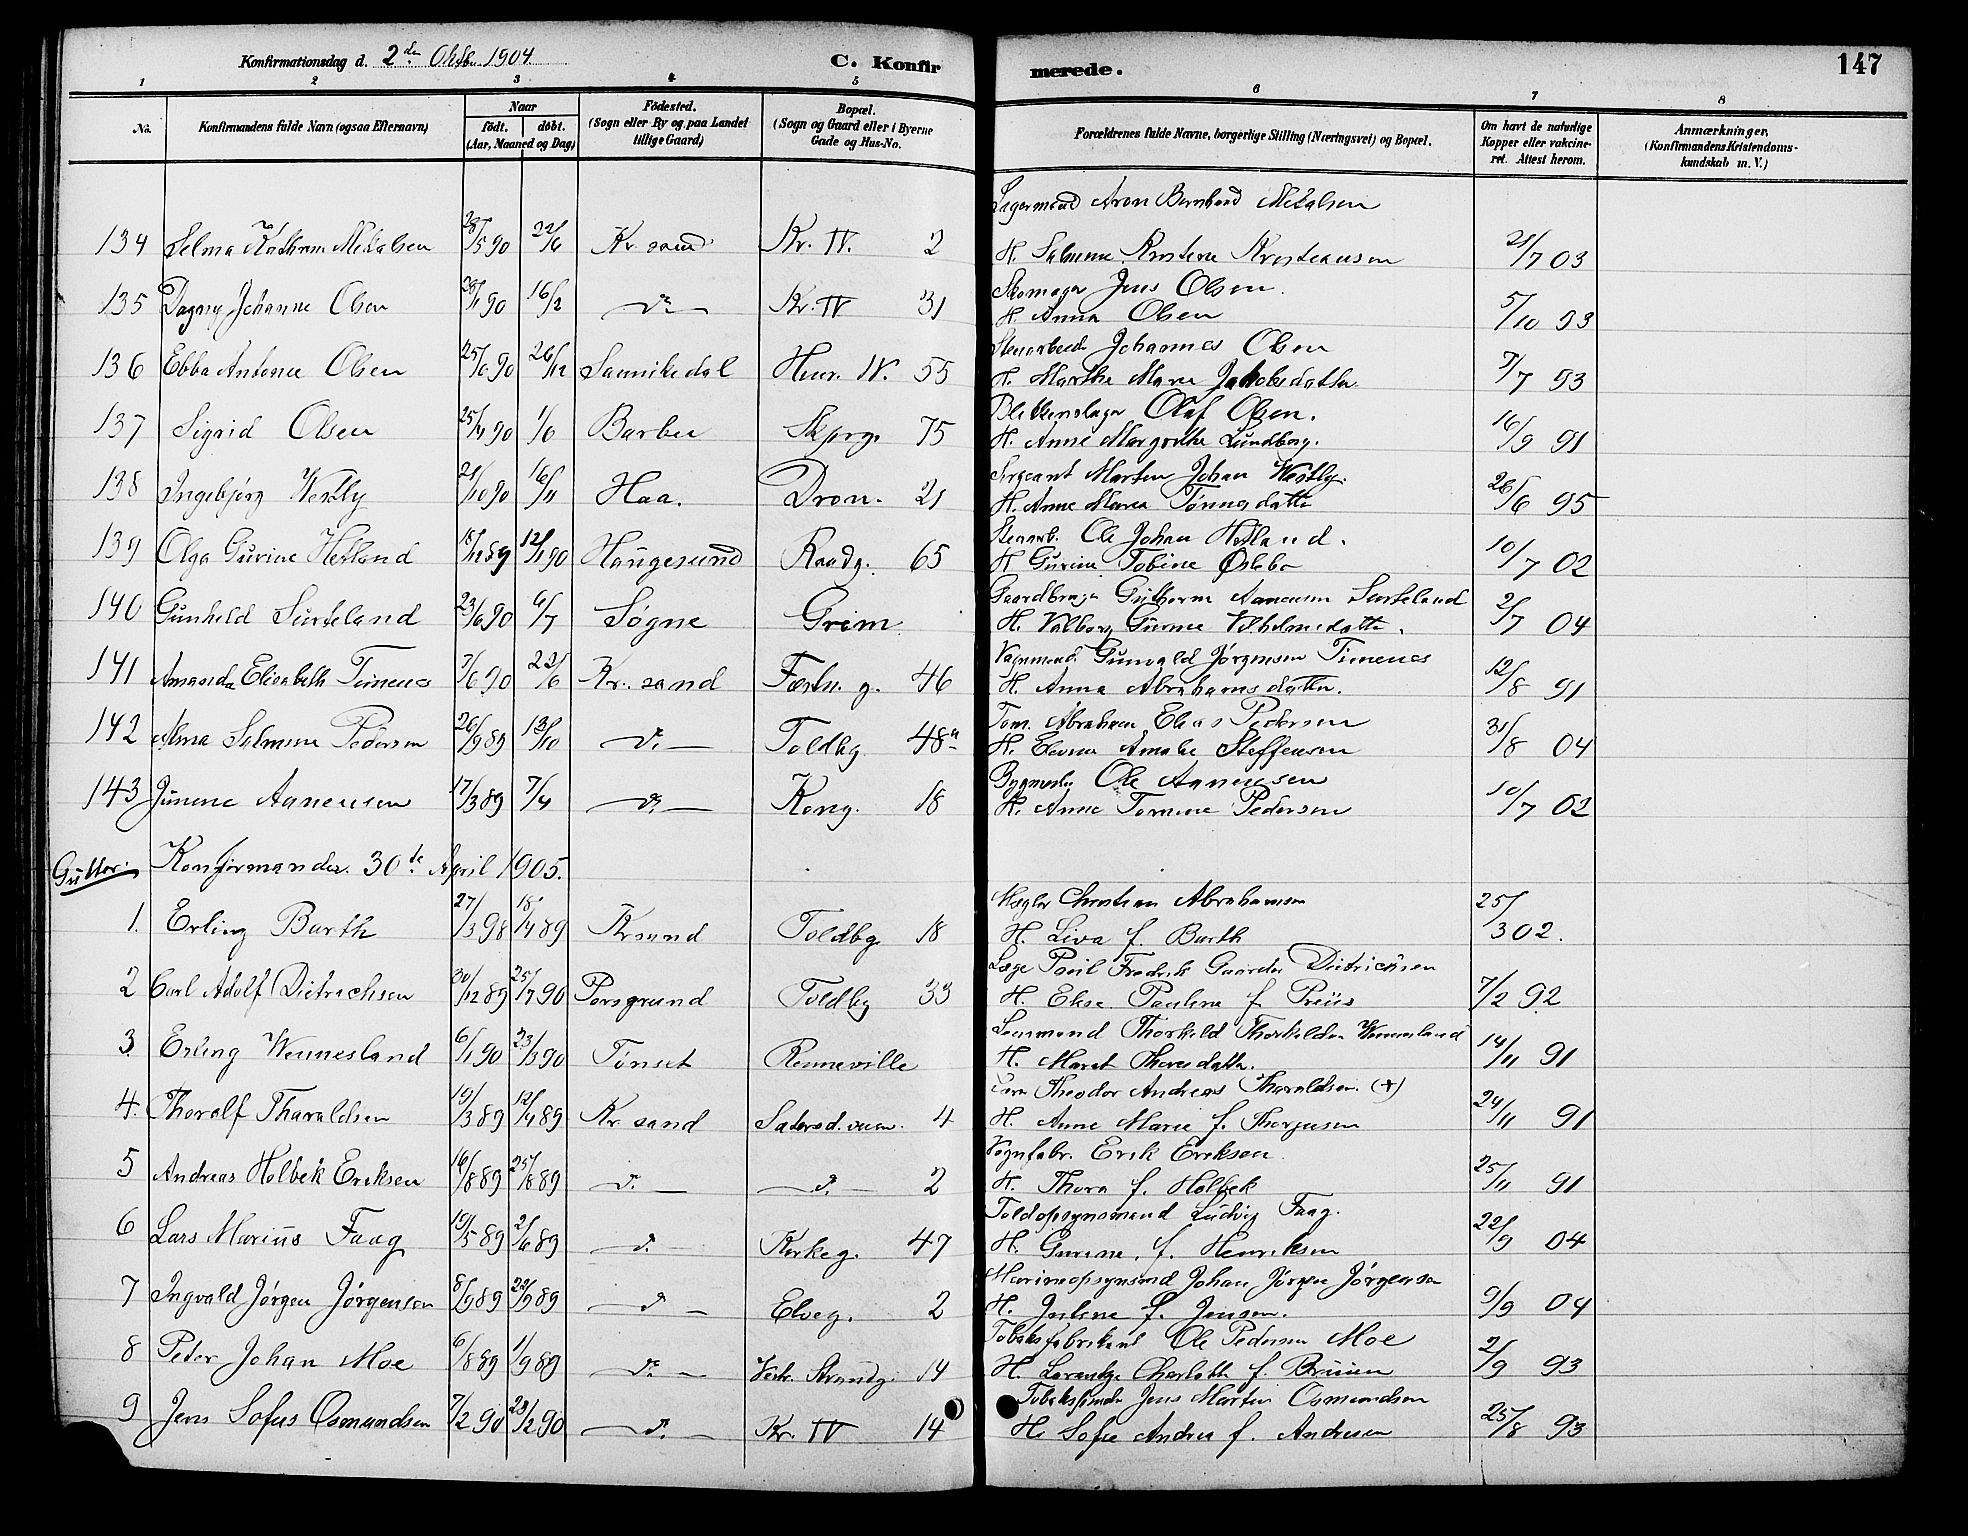 Konfirmationsdag d. 2den Oktbr 1904
C. Konfirmerede.
147
1 2 3 4 5 6 7 8
No. Konfirmandens fulde Navn (ogsaa Efternavn) Naar født. døbt. (Aar, Maaned og Dag) Fødested. (Sogn eller By og paa Landet tillige Gaard) Bopæl. (Sogn og Gaard eller i Byerne Gade og Hus-No. Forældrenes fulde Navne, borgerlige Stilling (Næringsvei) og Bopæl. Om havt de naturlige Kopper eller vakcineret. Attest herom. Anmærkninger. (Konfirmandens Kristendomskundskab m. V.)
Lagermand Aron Bernhard Mikalsen
134 Selma Kathrine Mikalsen 28/5 90 22/6 Kr. sand Kr. IV. 2 H. Salmine Kristine Kristiansen 21/7 03
Skomager Jens Olsen.
135 Dagny Johanne Olsen 20/1 90 16/2 do Kr. IV 31 H. Anna Olsen 5/10 93
Stenarbeid Johannes Olsen
136 Ebba Antonie Olsen 25/6 90 26/12 Sannikedal Henr. W. 55 H. Marthe Marie Jakobsdatter 7/7 93
Blikkenslager Olaf Olsen.
137 Sigrid Olsen 25/4 90 1/6 Barbu Skprg. 75 H. Anne Margrethe Lundberg. 16/9 91
Sergeant Martin Johan Westby.
138 Ingebjørg Westby 21/10 90 16/11 Haa. Dron. 21 H. Anne Maria Tønnesdatter 26/6 95
Stenarb. Ole Johan Hetland.
139 Olga Gurine Hetland 18/12 89 12/1 90 Haugesund Raadg. 65 H Gurine Tobine Øslebø 10/7 02
Gaardbruger Guthorm Aanensen Surteland
140 Gunhild Surteland 23/6 90 6/7 Søgne Grim H. Valborg Gurine Vilhelmsdatter. 2/7 04
Vognmand Gunvald Jørgensen Timenes
141 Amanda Elisabeth Timenes 7/6 90 22/6 Kr. sand Fæstn. g. 46 H. Anna Abrahamsdatter. 12/8 91
Tøm. Abraham Elias Pedersen
142 Alma Salmine Pedersen 26/9 89 13/10 do Toldbg 48a H. Elevine Amalie Steffensen 31/8 04
Bygmester Ole Aanensen
143 Jumine Aanensen 17/3 89 7/4 do Kong. 18 H. Anne Tomine Pedersen 10/7 02
Gutter. Konfirmander. 30te April 1905.
Mægler Christian Abrahamsen
1. Erling Barth 27/3 98 18/4 89 Krsand Toldbg 18 H. Liva f. Barth 25/3 02.
Læge Povil Fredrik Gaarder Dietrichsen
2 Carl Adolf Dietrichsen 30/12 89 25/7 90 Porsgrund Toldbg 33 H. Elise Pauline f. Preus 7/2 92
Lensmand Thorkild Thorkildsen Wennesland
3. Erling Wennesland 6/1 90 23/3 90 Tønset Renneville H. Marit Thoresdatter. 14/11 91
Theodor Andreas Tharaldsen. (+)
4. Thoralf Tharaldsen 19/3 89 12/4 89 Kr. sand Sætersd. veien. 4 H. Anne Marie f. Thorjusen 24/11 91
Vognfabr. Erik Eriksen.
5 Andreas Holbek Eriksen 16/8 89 25/8 89 do do 2 H. Thora f. Holbek 25/11 91
Toldopsynsmand Ludvig Faag.
6 Lars Marius Faag 19/5 89 2/6 89 do Kirkeg. 47 H. Gurine f. Henriksen 22/9 04
Marineopsynsmd Johan Jørgen Jørgensen
7 Ingvald Jørgen Jørgensen 8/9 89 22/9 89 do Elveg. 2 H. Juline f. Jensen. 9/9 04
Tobaksfabrikant Ole Pedersen Moe
8 Peder Johan Moe 6/8 89 1/9 89 do Vestr. Strandg. 14 H. Lorentze Charlotte f. Bruun 2/9 93
Tobaksspinder Jens Martin Osmundsen
9 Jens Sofus Osmundsen 7/2 90 23/2 90 do Kr. IV 14 H. Sofie Andrea f. Andresen 25/8 93